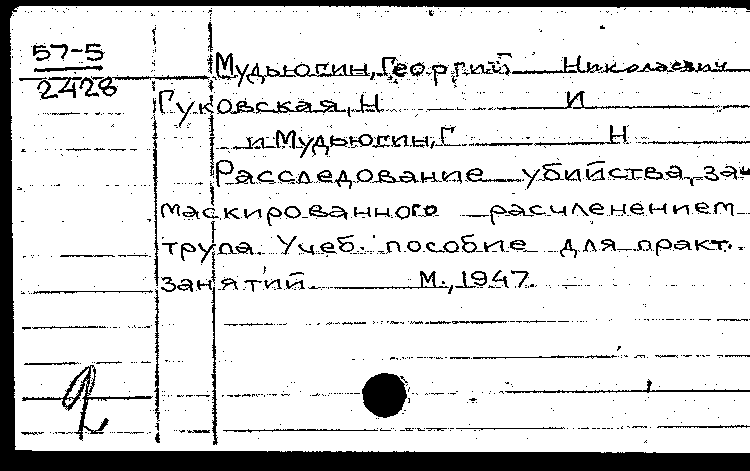 57-5
2428
Мудьюгин, Георгий Николаевич
Гуковская, Н И
и Мудьюгин, Г Н
Расследование убийства, за-
маскированного расчленением
трупа. Учеб. пособие для практ.
занятий. М., 1947.